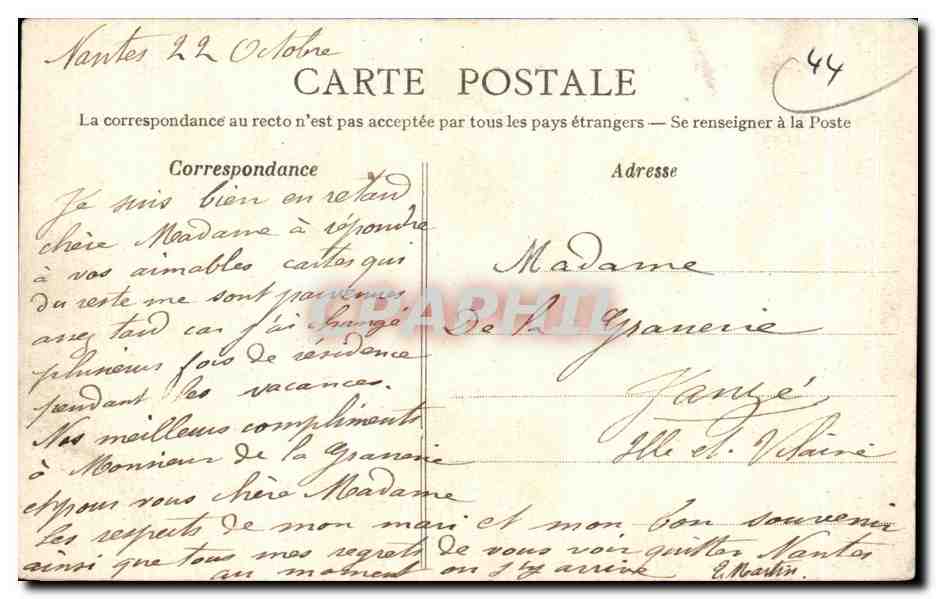 Nantes 22 Octobre
44
CARTE POSTALE
La correspondance au recto n'est pas acceptée par tous les pays étrangers — Se renseigner à la Poste
Correspondance
Je suis bien en retard
chère Madame à répondre
à vos aimables cartes qui
du reste me sont parvenues
assez tard car j'ai changé
plusieurs fois de résidence
pendant les vacances.
Nos meilleurs compliments
à Monsieur de la Granerie
et pour vous chère Madame
les respects de mon mari et mon bon souvenir
ainsi que tous mes regrets de vous voir quitter Nantes
au moment où j'y arrive E. Martin.
Adresse
Madame
De la Granerie
Janzé
Ille et Vilaine
CPAPHIL